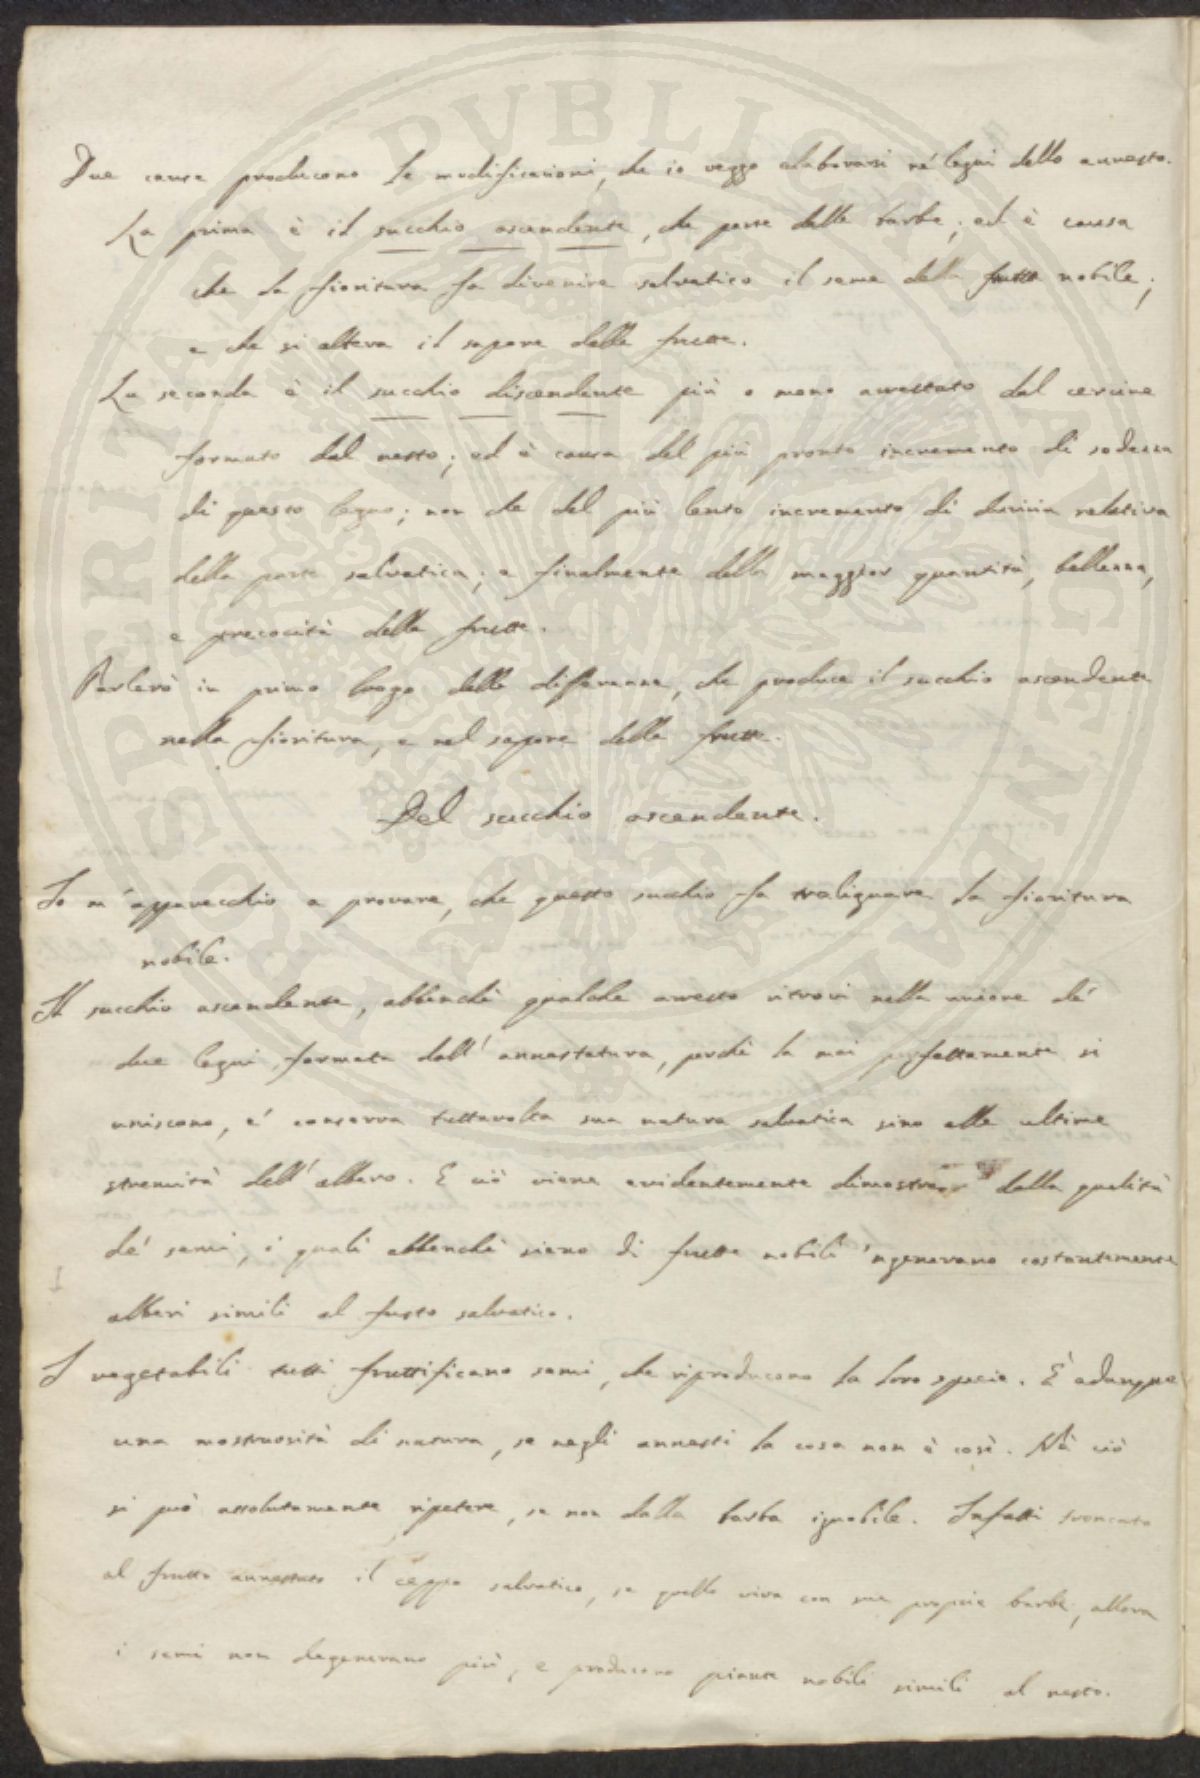 Due cause producono le modificazioni, che io veggo elaborarsi ne' legni dello annesto.
La prima è il succhio ascendente, che parte dalle barbe; ed è causa
che la fioritura fa divenire salvatico il seme della frutta nobile;
e che si altera il sapore delle frutte.
La seconda è il succhio discendente più o meno arrestato dal cercine
formato dal nesto; ed è causa del più pronto incremento di sodezza
di questo legno; non che del più lento incremento di relativa
della parte salvatica; e finalmente della maggior quantità, bellezza,
e precocità delle frutte.
Parlerò in primo luogo delle differenze, che produce il succhio ascendente
nella fioritura, e nel sapore delle frutte.
Del succhio ascendente.
Io m'apparecchio a provare, che questo succhio fa tralignare la fioritura
nobile.
Il succhio ascendente, abbenchè qualche arresto ritrovi nella unione de'
due legni formata dall'annestatura, perchè la mai perfettamente si
uniscono, e' conserva tuttavolta sua natura salvatica sino alle ultime
stremità dell'albero. E ciò viene evidentemente dimostrato dalla qualità
de' semi, i quali abbenchè sieno di frutte nobili 'ngenerano costantemente
alberi simili al fusto salvatico.
I vegetabili tutti fruttificano semi, che riproducono la loro specie. È adunque
una mostruosità di natura, se negli annesti la cosa non è così. Nè ciò
si può assolutamente ripetere, se non dalla barba ignobile. Infatti troncato
al frutto annestato il ceppo salvatico, se quello viva con sue proprie barbe, allora
i semi non degenerano più, e producono piante nobili simili al nesto.
PROSPERITATI PUBLICAE AUGENDAE